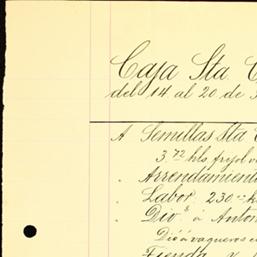 Caja Sta
del 14 al 20 de
A Semillas Sta
3 72 hls frijol
" Arrendamient
" Labor 230
" Dio á Anton
Dió á vaqueros
Tienda